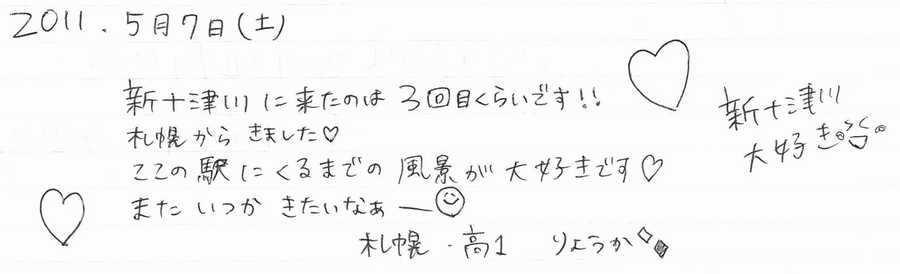 2011.5月7日(土)
新十津川に来たのは3回目くらいです!!
札幌から きました♡
ここの駅にくるまでの風景が大好きです♡
また いつか きたいなぁー☺
札幌・高1 りょうか
新十津川
大好き